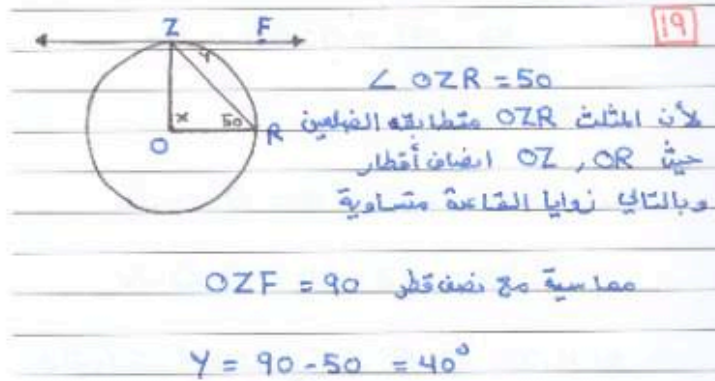 19
Z F
Y
∠ OZR = 50
x 50
O R
لأن المثلث OZR متطابق الضلعين
حيث OZ , OR انصاف أقطار
وبالتالي زوايا القاعدة متساوية
OZF = 90 مماسية مع نصف قطر
Y = 90 - 50 = 40°